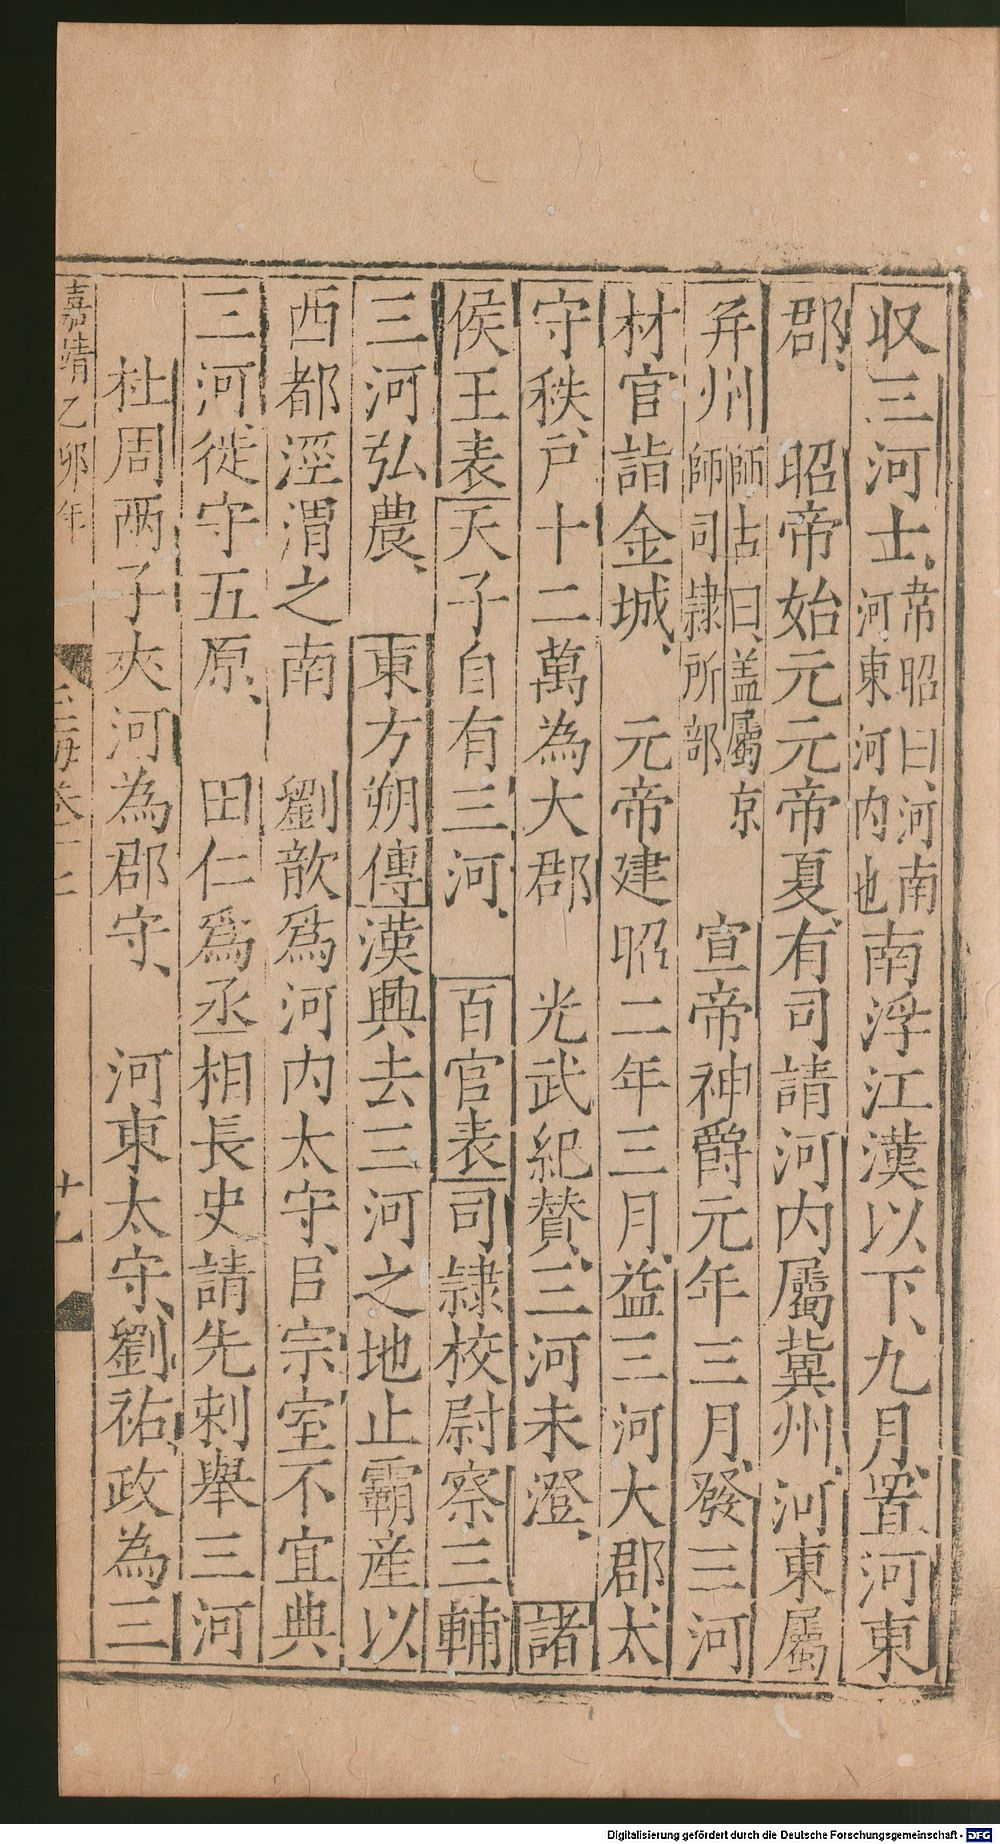 収三河士韋昭曰河南河東河内也南浮江漢以下九月置河東
郡　昭帝始元元帝夏有司請河内屬冀州河東屬
幷州師古曰盖屬京師司隷所部　宣帝神爵元年三月發三河
材官詣金城　元帝建昭二年三月益三河大郡太
守秩戶十二萬為大郡　光武紀贊三河未澄　諸
侯王表天子自有三河　百官表司隷校尉察三輔
三河弘農　東方朔傳漢興去三河之地止霸産以
西都涇渭之南　劉歆爲河内太守㠯宗室不宜典
三河徙守五原　田仁爲丞相長史請先刺舉三河
杜周兩子夾河為郡守　河東太守劉祐政為三
嘉靖乙卯年
玉海卷十七
十九
Digitalisierung gefördert durch die Deutsche Forschungsgemeinschaft - DFG